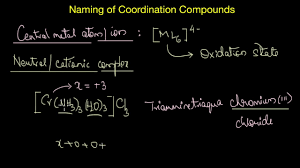 Naming of Coordination Compounds
Central metal atom/ion : [ML6]4-
Oxidation state
Neutral/cationic complex
x = +3
[Cr(NH3)3(H2O)3]Cl3
Triamminetriaqua chromium(III)
chloride
x+0+0+